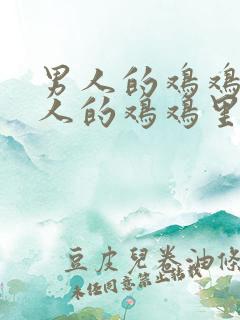 男人的鸡鸡
人的鸡鸡里
豆皮兒卷油條
未经同意禁止转载